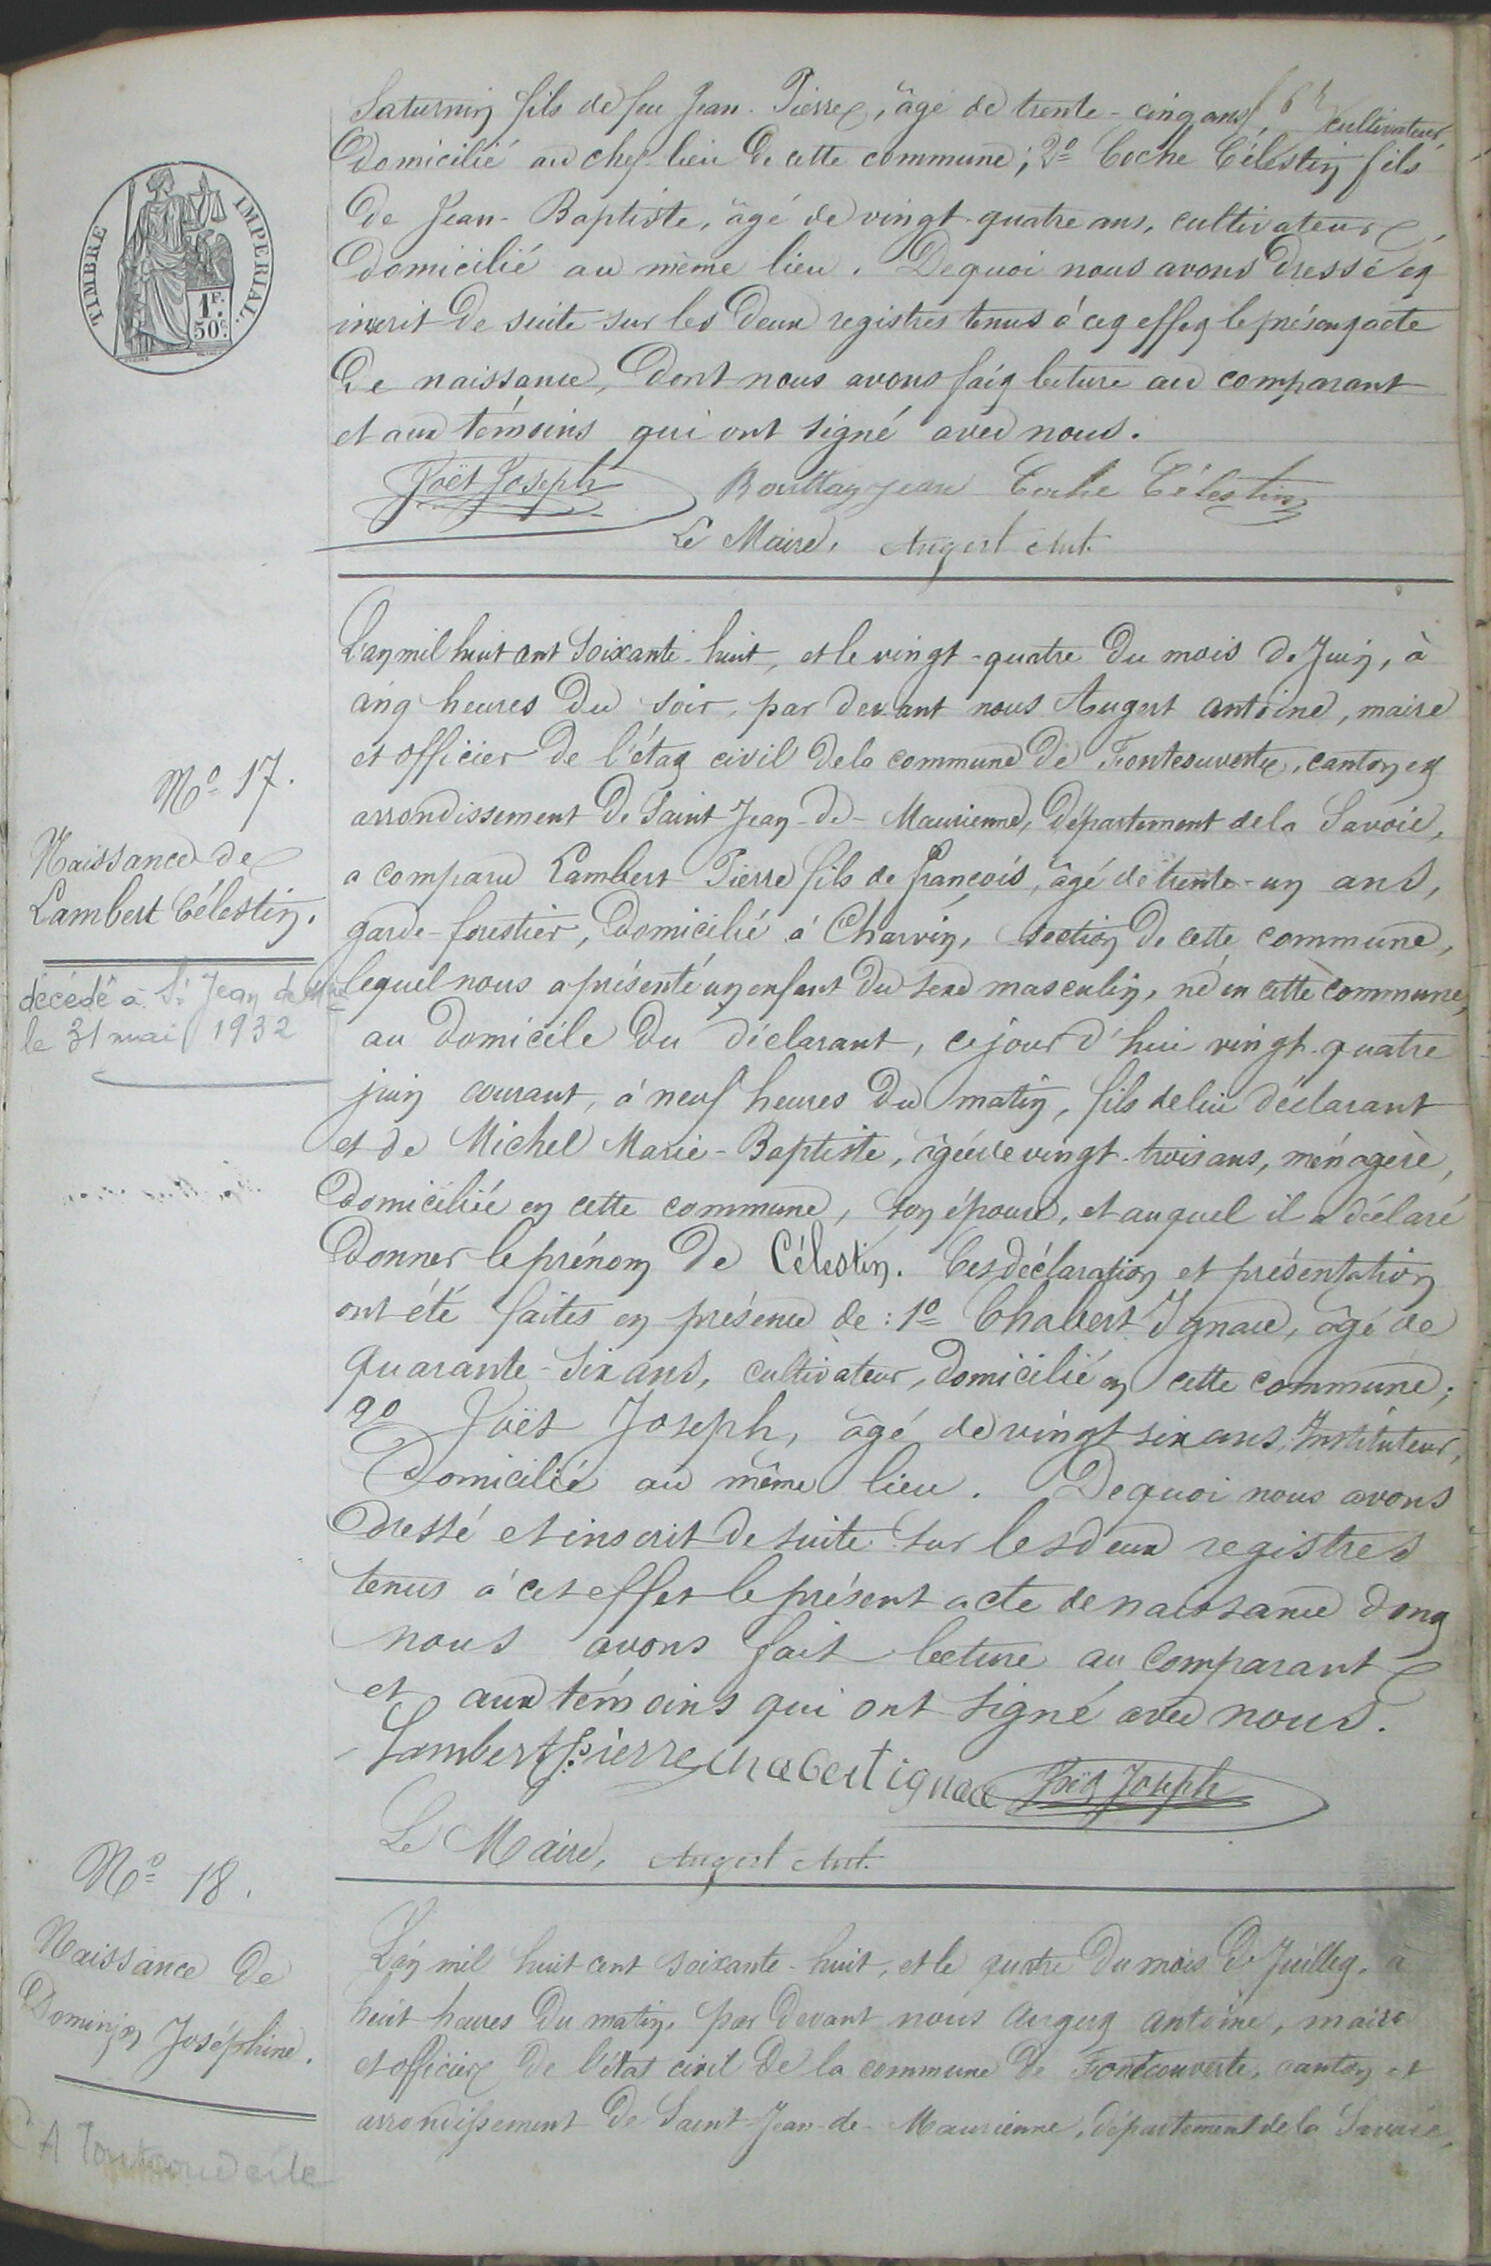 Saturnin fils de feu Jean-Pierre, âgé de trente-cinq ans, cultivateur
domicilié au chef-lieu de cette commune; 2º Coche Célestin fils
de Jean-Baptiste, âgé de vingt-quatre ans, cultivateur,
domicilié au même lieu. De quoi nous avons dressé et
inscrit de suite sur les deux registres tenus à cet effet le présent acte
de naissance, dont nous avons fait lecture au comparant
et aux témoins qui ont signé avec nous.
Joët Joseph Bouttaz jean Coche Célestin
Le Maire, Augert Ant.
TIMBRE IMPERIAL.
1F. 50c.
L'an mil huit cent soixante-huit, et le vingt-quatre du mois de Juin, à
cinq heures du soir, par devant nous Augert antoine, maire
et officier de l'état civil de la commune de Fontcouverte, canton et
arrondissement de Saint-Jean-de-Maurienne, département de la Savoie,
a comparu Lambert Pierre fils de françois, âgé de trente-un ans,
garde-forestier, domicilié à Charvin, section de cette commune,
lequel nous a présenté un enfant du sexe masculin, né en cette commune,
au domicile du déclarant, cejourd'hui vingt-quatre
juin courant, à neuf heures du matin, fils de lui déclarant
et de Michel Marie-Baptiste, âgée de vingt-trois ans, ménagère,
domiciliée en cette commune, son épouse, et auquel il a déclaré
donner le prénom de Célestin. Ces déclaration et présentation
ont été faites en présence de : 1º Chabert Ignace, âgé de
quarante-six ans, cultivateur, domicilié en cette commune;
2º Joët Joseph, âgé de vingt six ans, Instituteur,
Domicilié au même lieu. De quoi nous avons
dressé et inscrit de suite sur les deux registres
tenus à cet effet le présent acte de naissance dont
nous avons fait lecture au comparant
et aux témoins qui ont signé avec nous.
Lambert Pierre chabert ignace Joët Joseph
Le Maire, Augert Ant.
Nº 17.
Naissance de
Lambert Célestin.
décédé à St Jean de Mne
le 31 mai 1932
Nº 18.
Naissance de
Dominjon Joséphine.
A Fontcouverte
L'an mil huit cent soixante-huit, et le quatre du mois de Juillet, à
huit heures du matin, par devant nous Augert antoine, maire
et officier de l'état civil de la commune de Fontcouverte, canton et
arrondissement de Saint-Jean-de-Maurienne, département de la Savoie,